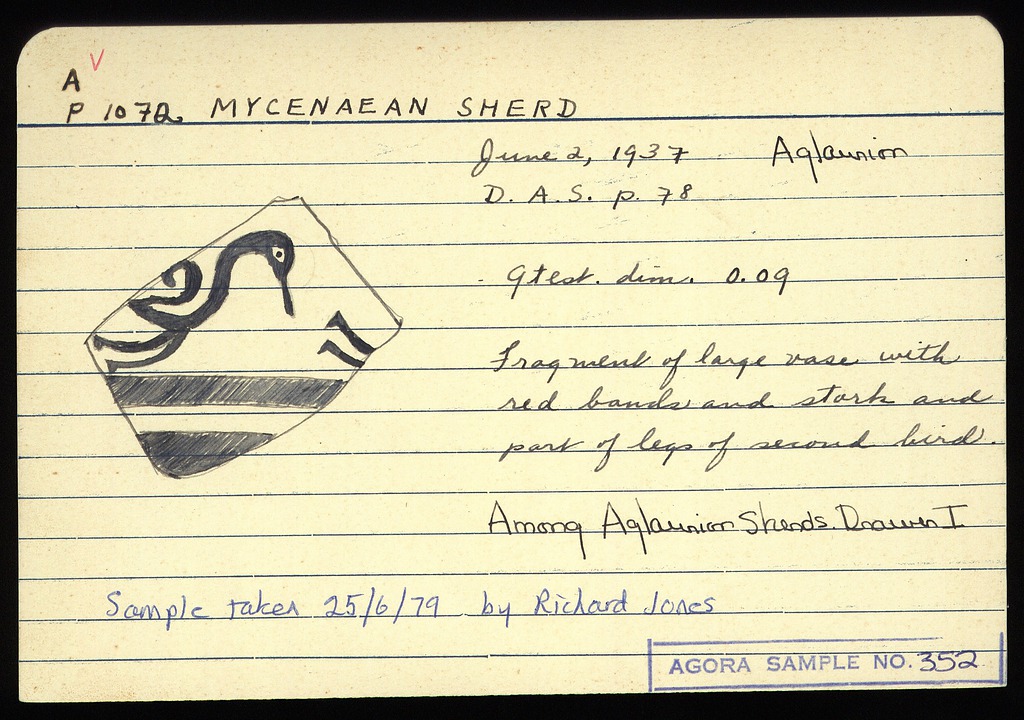 A V
P 1072 MYCENAEAN SHERD
June 2, 1937 Aglaurion
D. A. S. p. 78
Gtest. dim. 0.09
Fragment of large vase with
red bands and stork and
part of legs of second bird.
Among Aglaurion Sherds. Drawer I
Sample taken 25/6/79 by Richard Jones
AGORA SAMPLE NO. 352